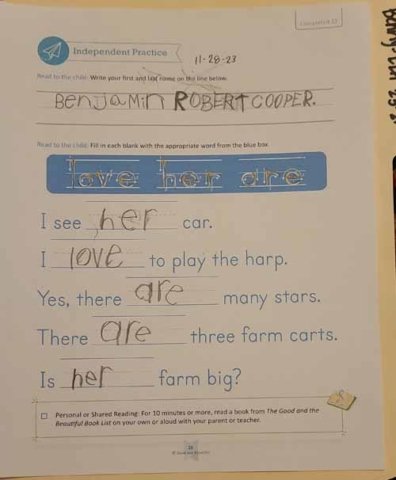 Independent Practice
11-28-23
Read to the child: Write your first and last name on the line below.
BenjaMin ROBERT COOPER.
Read to the child: Fill in each blank with the appropriate word from the blue box.
love her are
I see her car.
I love to play the harp.
Yes, there are many stars.
There are three farm carts.
Is her farm big?
Personal or Shared Reading: For 10 minutes or more, read a book from The Good and the
Beautiful Book List on your own or aloud with your parent or teacher.